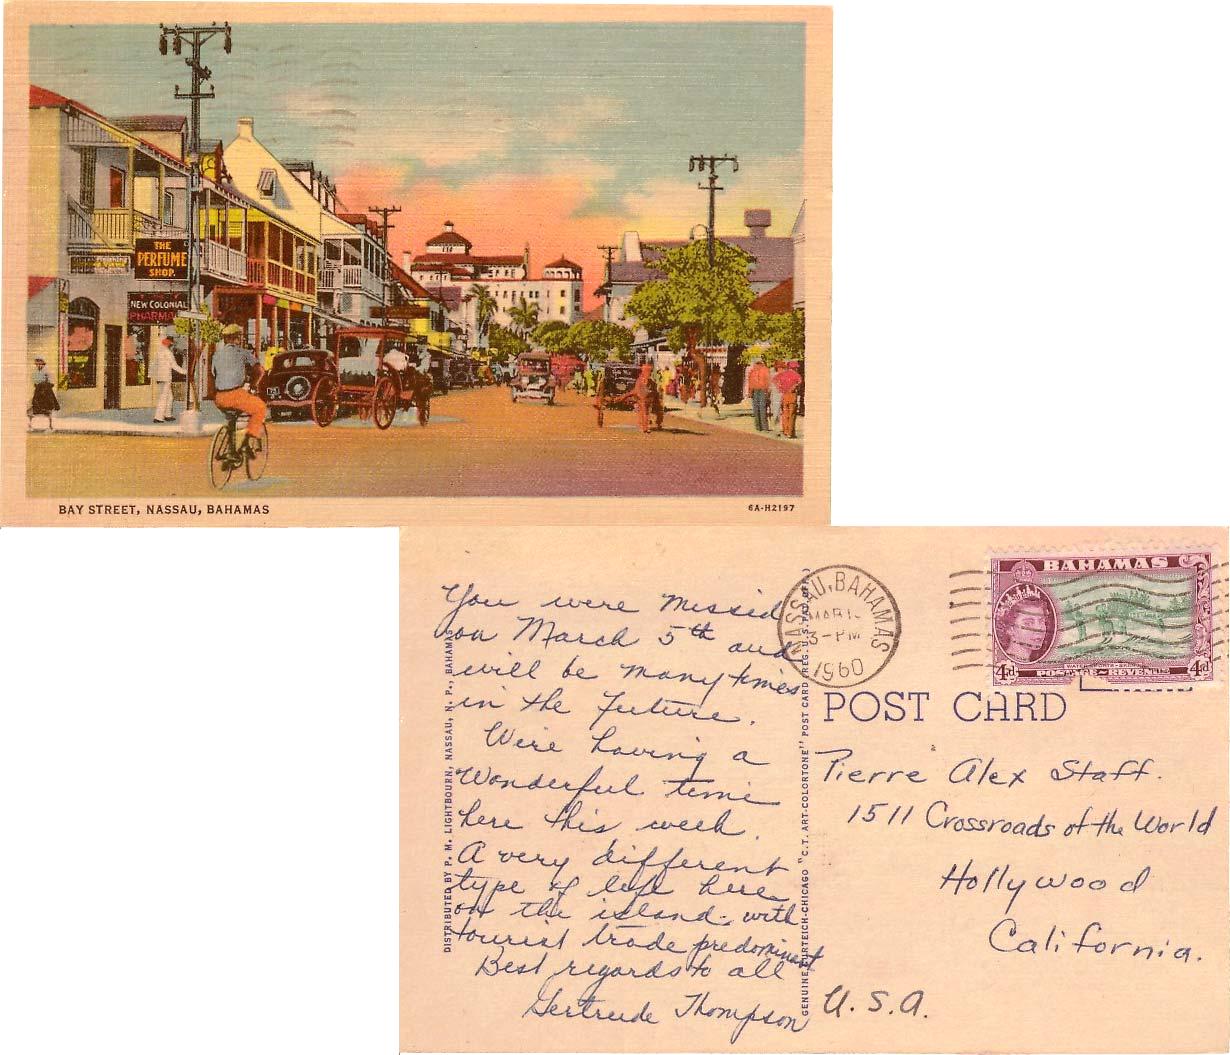 THE
PERFUME
SHOP.
NEW COLONIAL
PHARMACY
BAY STREET, NASSAU, BAHAMAS
6A-H2197
You were missed
on March 5th and
will be many times
in the future.
We're having a
Wonderful time
here this week.
A very different
type of life here
on the island with
tourist trade predominant
Best regards to all
Gertrude Thompson
DISTRIBUTED BY P. M. LIGHTBOURN, NASSAU, N. P., BAHAMAS
GENUINE CURTEICH-CHICAGO "C.T. ART-COLORTONE" POST CARD (REG. U.S. PAT. OFF.)
NASSAU, BAHAMAS
3-PM
1960
BAHAMAS
4d
POSTAGE REVENUE
4d
POST CARD
Pierre Alex Staff.
1511 Crossroads of the World
Hollywood
California.
U.S.A.